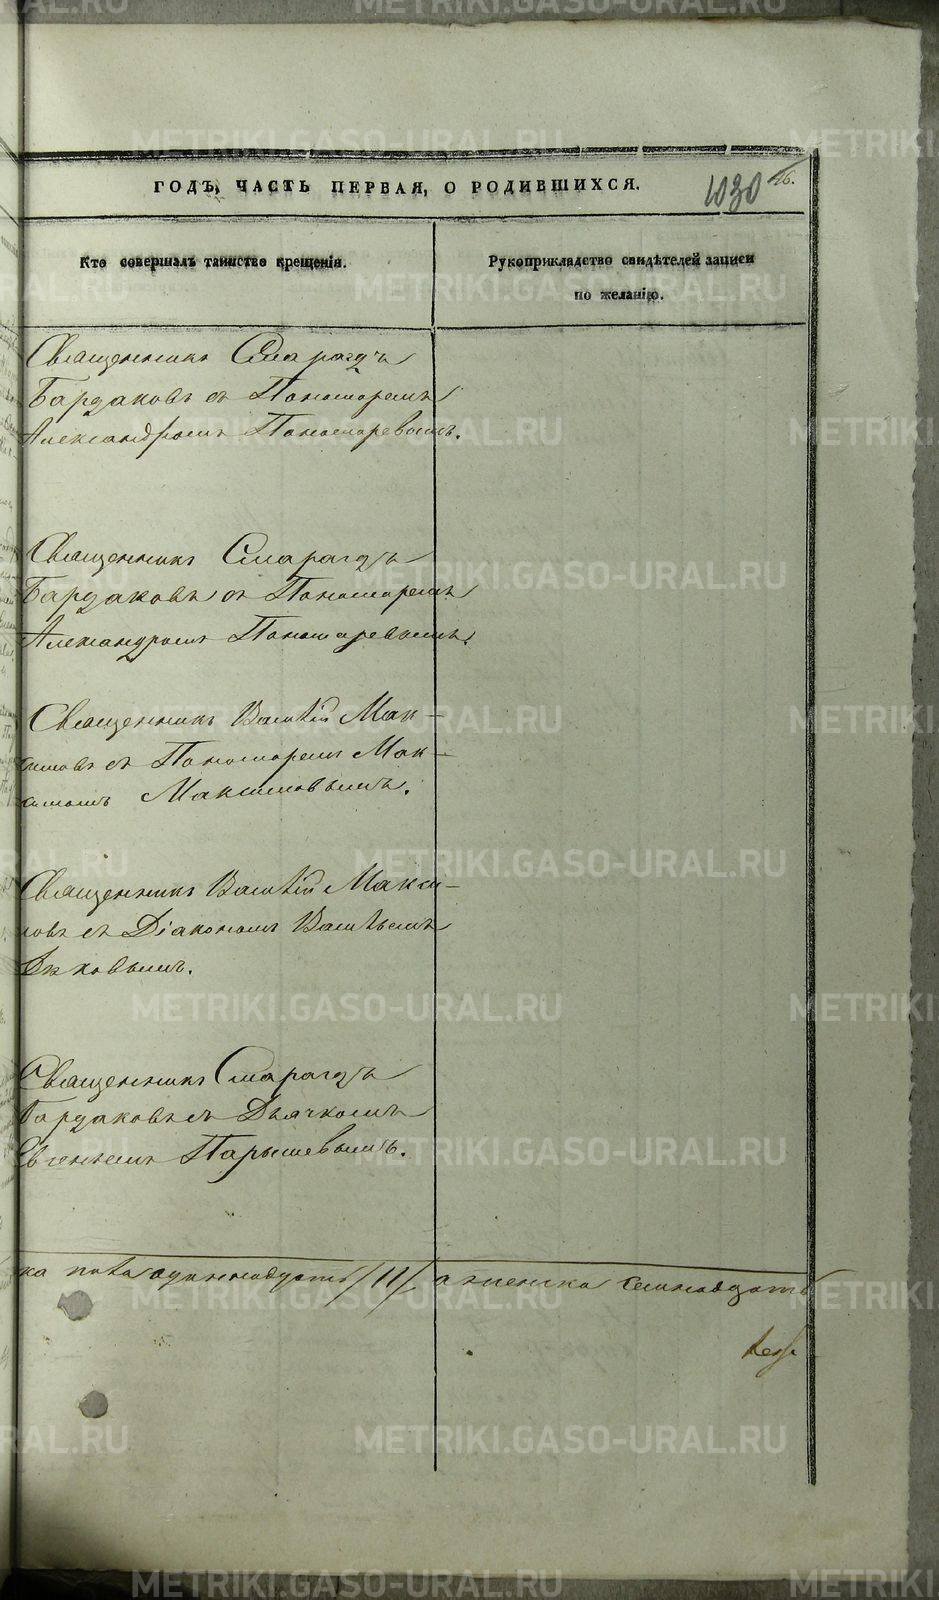 ГОДЪ, ЧАСТЬ ПЕРВАЯ, О РОДИВШИХСЯ.
1030
Кто совершалъ таинство крещенія.
Рукоприкладство свидѣтелей записи
по желанію.
Священникъ Смарагдъ
Бардаковъ съ Пономаремъ
Александромъ Пономаревымъ.
Священникъ Смарагдъ
Бардаковъ съ Пономаремъ
Александромъ Пономаревымъ.
Священникъ Василій Мак-
симовъ съ Пономаремъ Мак-
симомъ Максимовымъ.
Священникъ Василій Макси-
мовъ съ Діакономъ Васильемъ
Священникъ Смарагдъ
Бардаковъ съ Дьячкомъ
Евгеніемъ Парышевымъ.
ка пола одиннадцать /11/ а женска семнадцать
METRIKI.GASO-URAL.RU